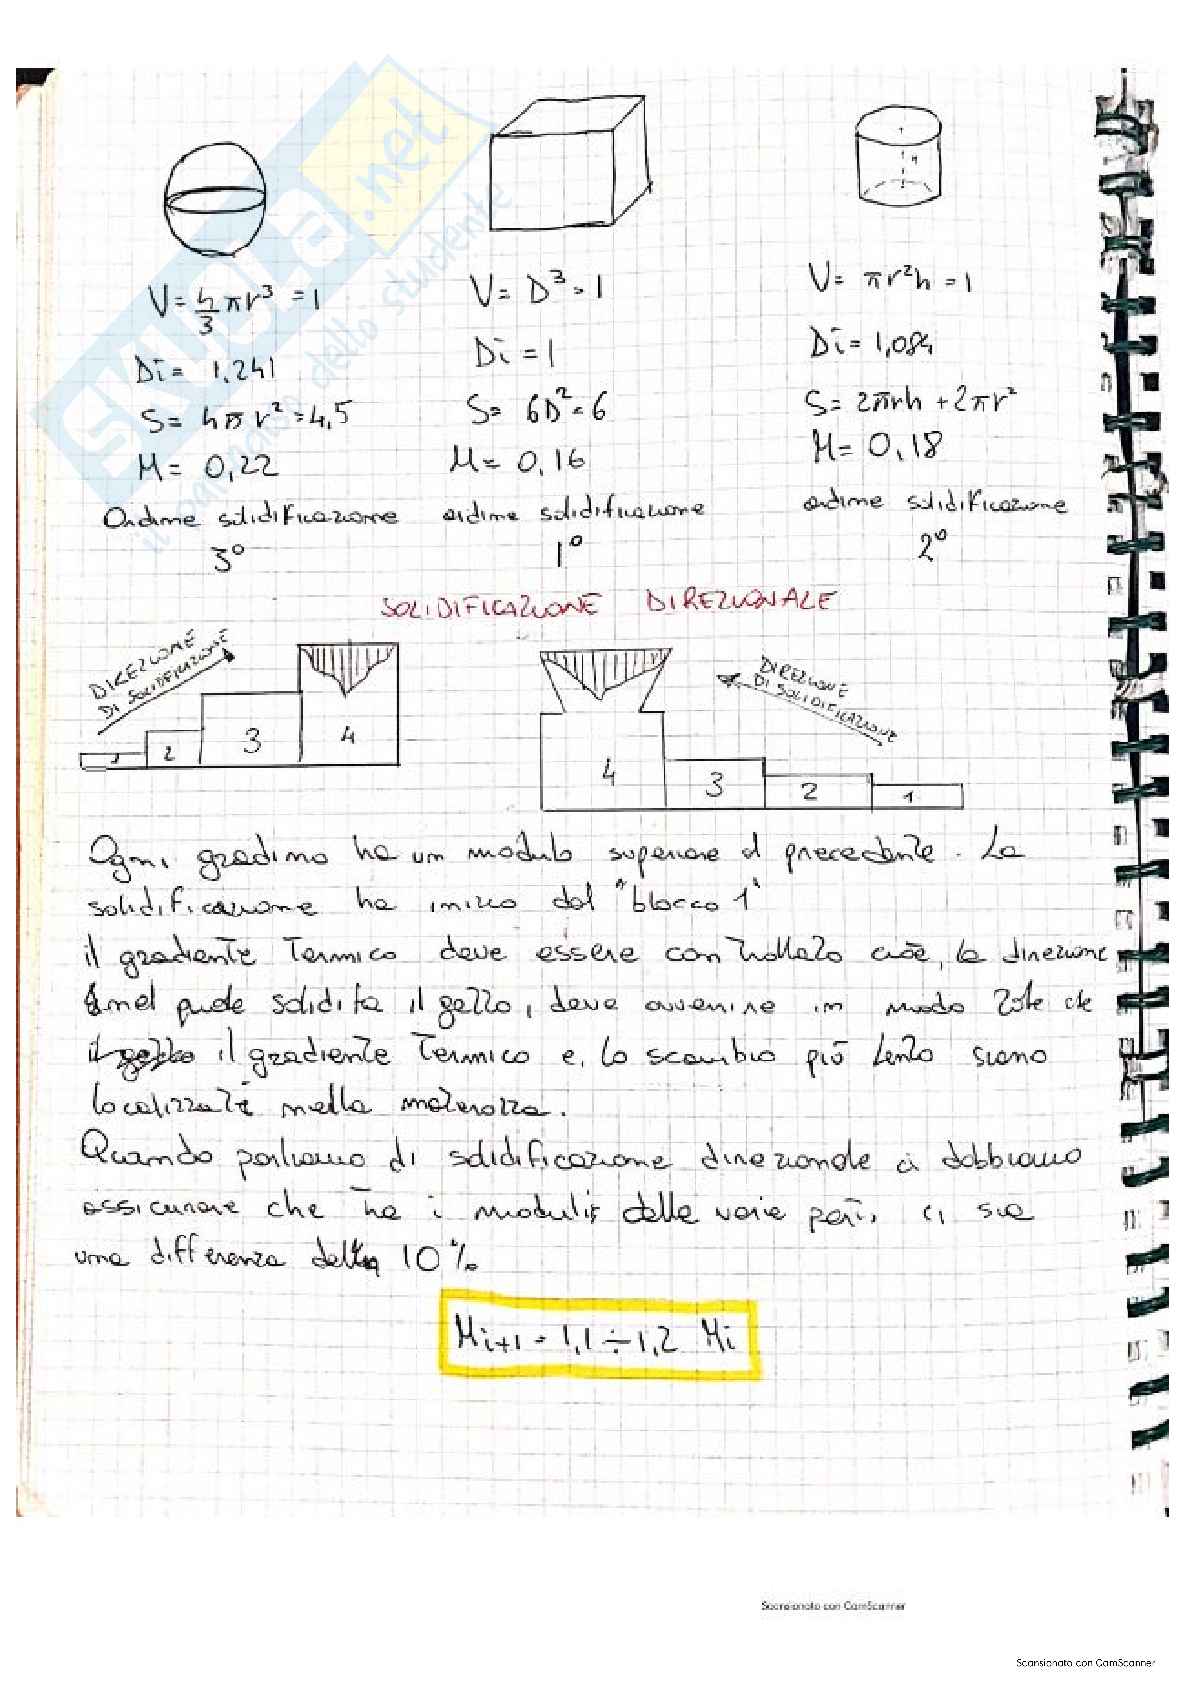 V= 4/3 πr³ = 1
Di= 1,241
S= 4πr²=4,5
M= 0,22
Ordine solidificazione
3°
V= D³=1
Di=1
S= 6D²=6
M= 0,16
ordine solidificazione
1°
V= πr²h =1
Di= 1,084
S= 2πrh +2πr²
M= 0,18
ordine solidificazione
2°
SOLIDIFICAZIONE DIREZIONALE
DIREZIONE
DI SOLIDIFICAZIONE
1 2 3 4
DIREZIONE
DI SOLIDIFICAZIONE
4 3 2 1
Ogni gradino ha un modulo superiore al precedente. La
solidificazione ha inizio dal "blocco 1"
il gradiente Termico deve essere controllato cioè, la direzione
nel quale solidifa il getto, deve avvenire in modo tale che
il getto il gradiente Termico e, lo scambio più lento siano
localizzati nella materozza.
Quando parliamo di solidificazione direzionale ci dobbiamo
assicurare che tra i moduli delle varie parti, ci sia
una differenza del 10%
Mi+1 = 1,1 ÷ 1,2 Mi
SKUOLA.net
il paradiso dello studente
Scansionato con CamScanner
Scansionato con CamScanner